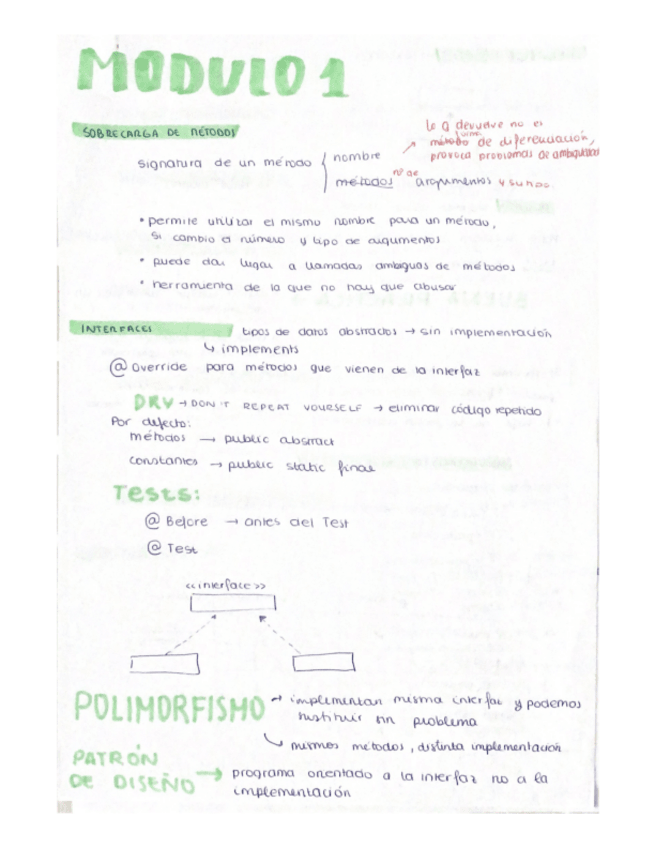 MODULO 1
SOBRECARGA DE MÉTODOS
lo q devuelve no es
método de diferenciación,
provoca problemas de ambigüedad
signatura de un método
nombre
métodos nº de argumentos y su tipo
• permite utilizar el mismo nombre para un método,
si cambio el número y tipo de augumentos
• puede dar lugar a llamadas ambiguas de métodos
• herramienta de la que no hay que abusar
INTERFACES tipos de datos abstractos → sin implementación
↳ implements
@Override para métodos que vienen de la interfaz
DRY → DON'T REPEAT YOURSELF → eliminar código repetido
Por defecto:
métodos → public abstract
constantes → public static final
Tests:
@ Before → antes del Test
@ Test
<<interface>>
POLIMORFISMO → implementan misma interfaz y podemos
sustituir sin problema
↳ mismos métodos, distinta implementación
PATRÓN
DE DISEÑO → programa orientado a la interfaz no a la
implementación